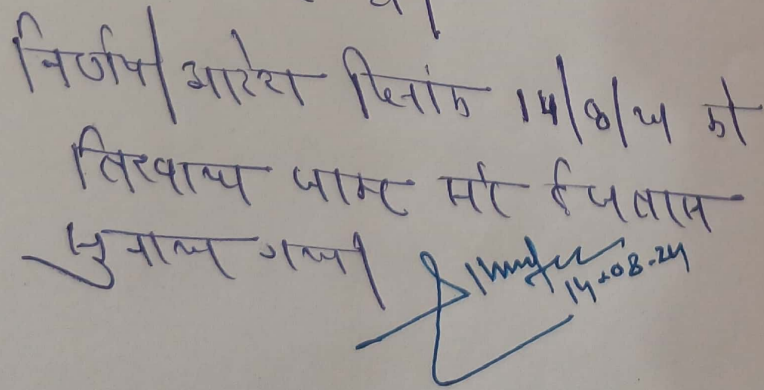 निर्णय/आदेश दिनांक 14/8/24 को
लिखाया जाकर सरे ईजलास
सुनाया गया।
14-08-24